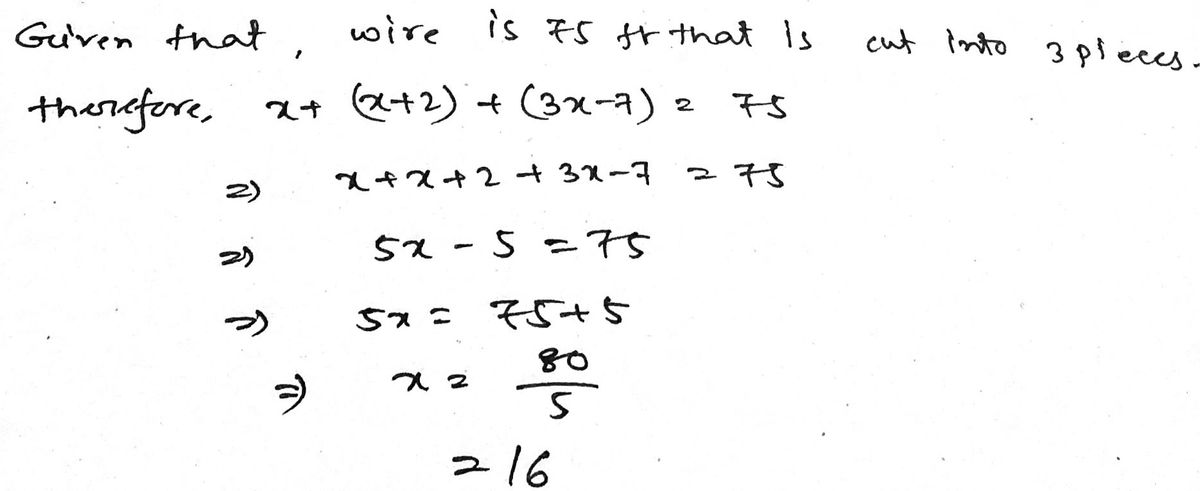 Given that, wire is 75 ft that is cut into 3 pieces.
therefore, x + (x+2) + (3x-7) = 75
⇒ x + x + 2 + 3x - 7 = 75
⇒ 5x - 5 = 75
⇒ 5x = 75 + 5
⇒ x = 80/5
= 16